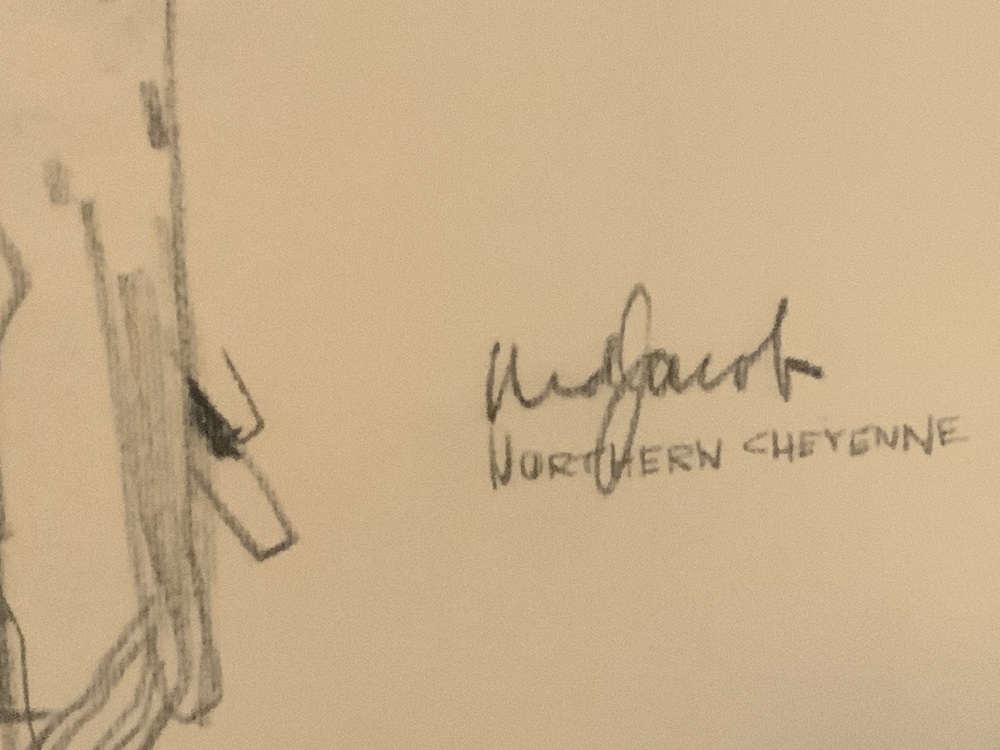 Jacob
NORTHERN CHEYENNE